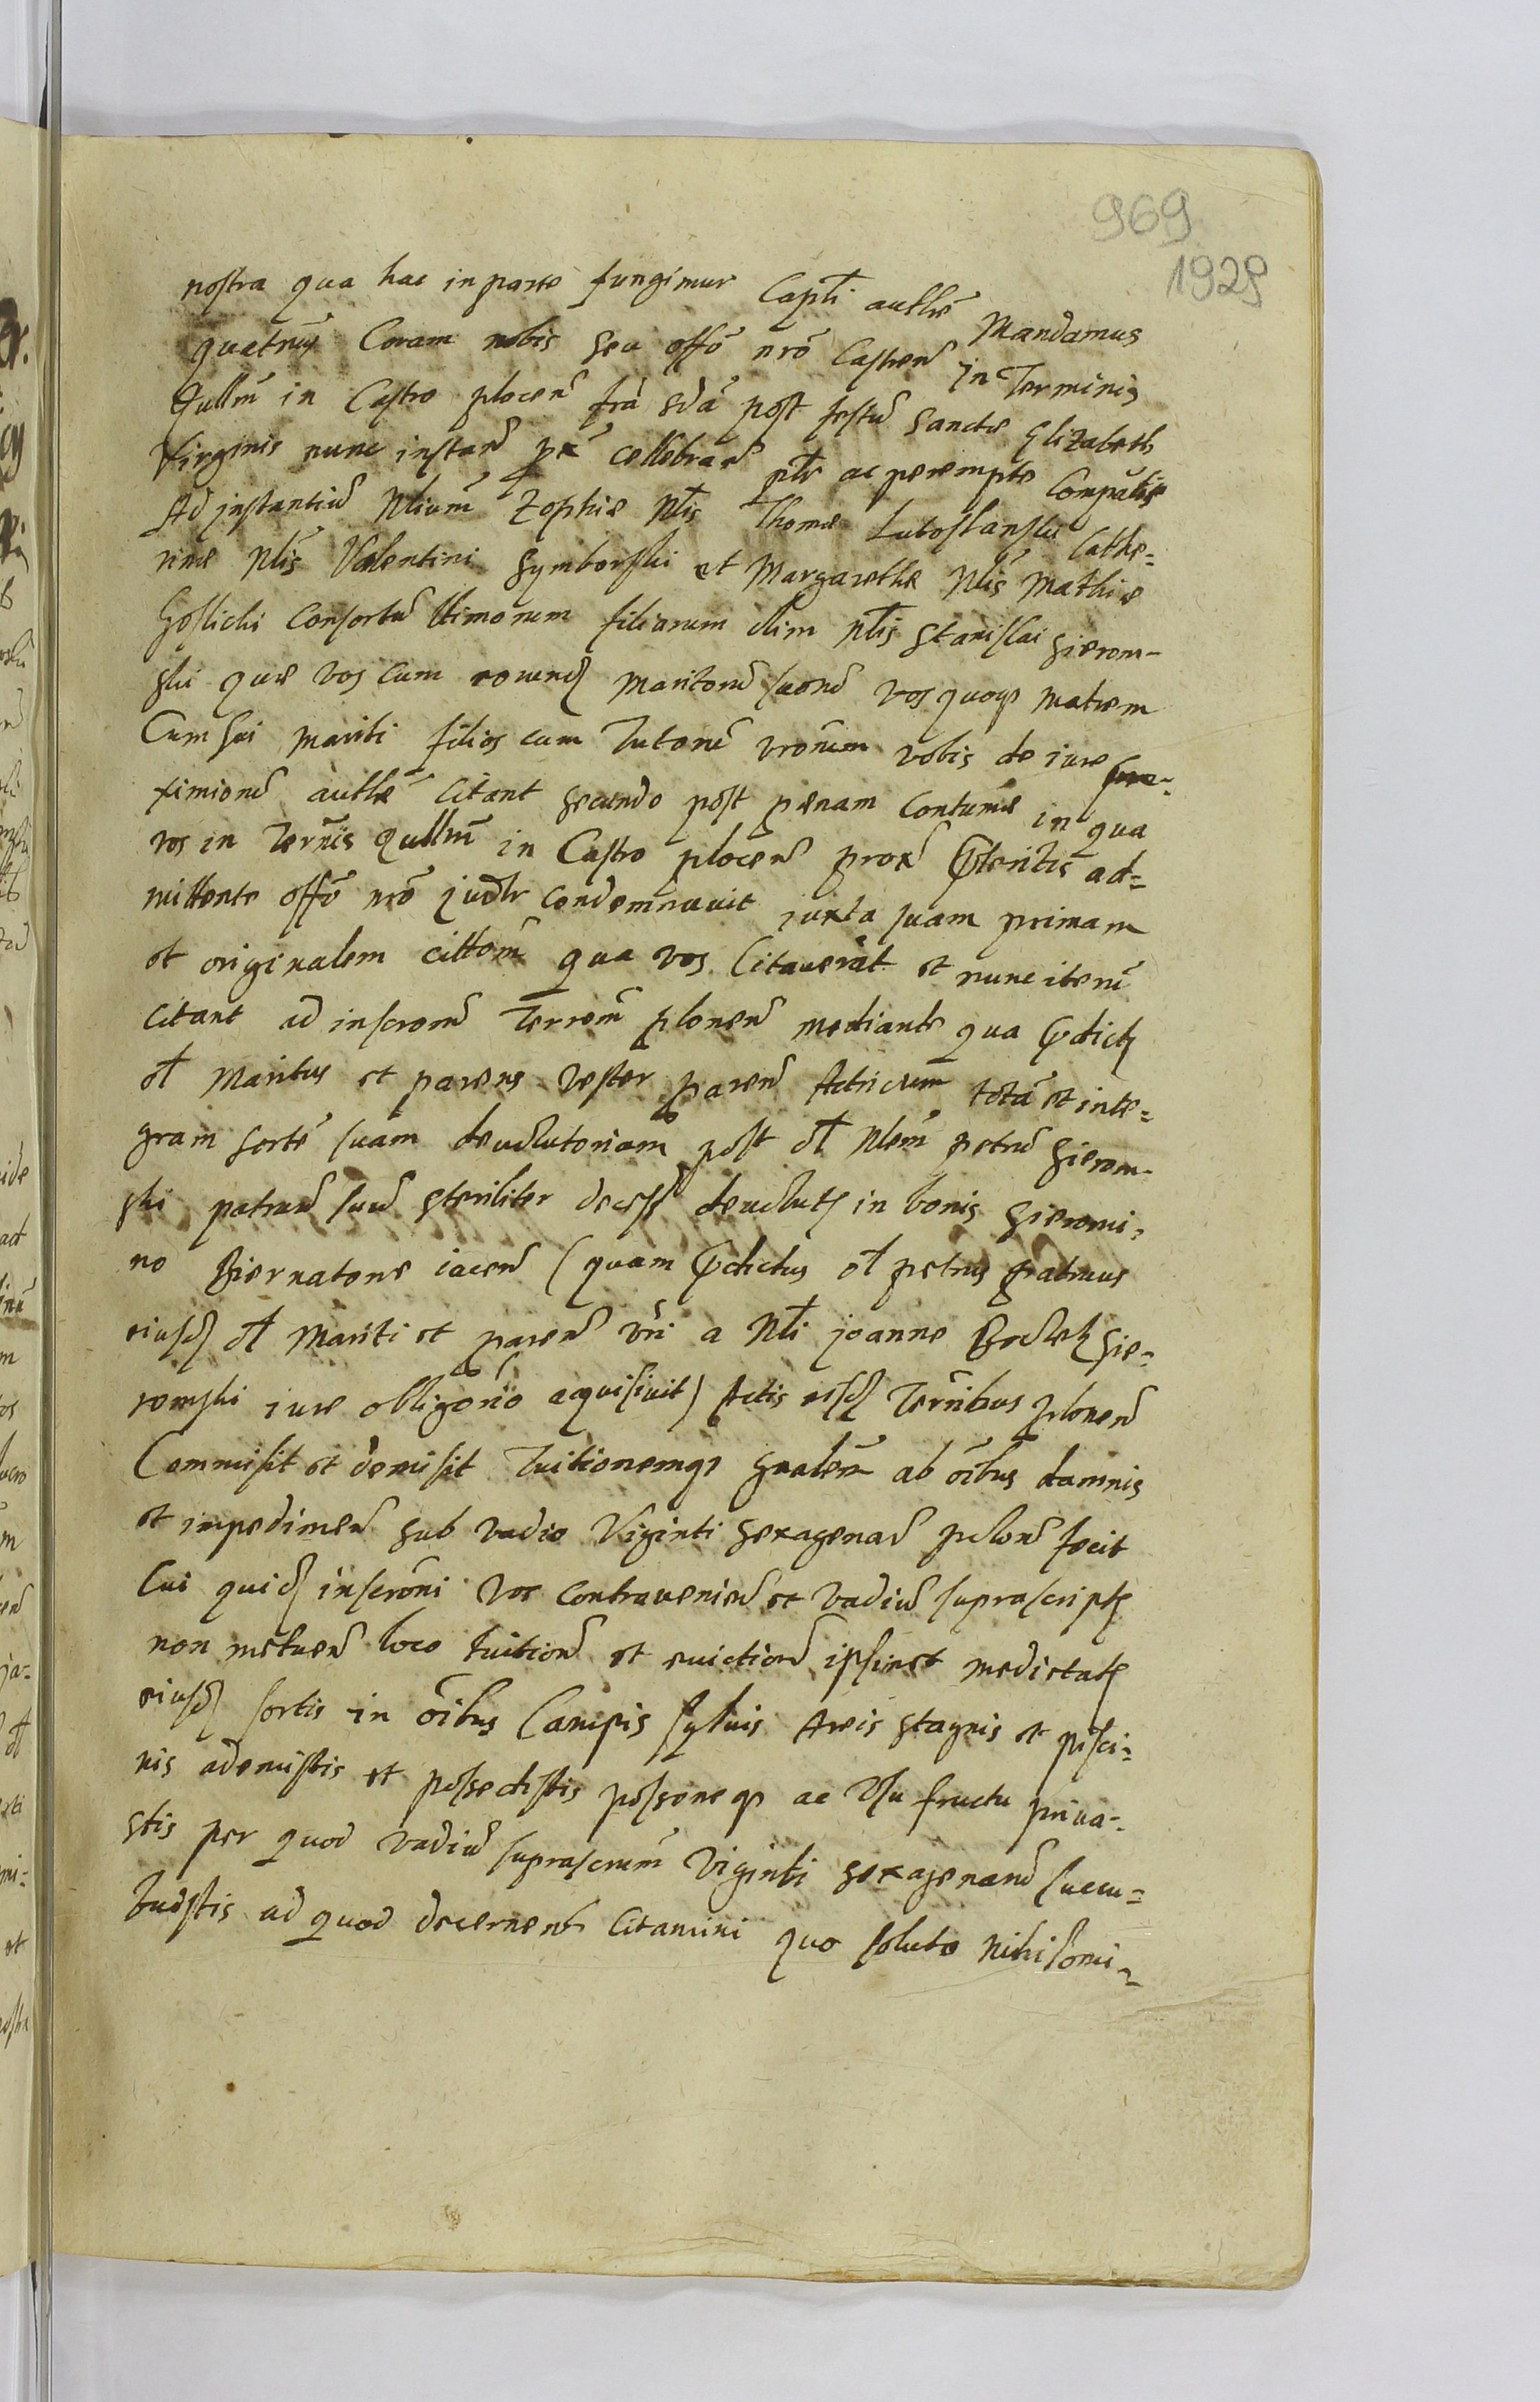 969
1929
nostra qua hac in parte fungimur Captli authe Mandamus
quatnus Coram nobis seu offo nro Castren in Terminis
qullm in Castro plocen fra sda post festu sanctæ Elizabeth
Virginis nunc instan px cellebran ptr ac perempte Compatis
Ad instantiu Nlium Zophiæ Nlis Thomæ Lutostanski Cathe=
rinæ Nlis Valentini Symborski et Margarethæ Nlis Mathiæ
Goslicki Consortu ltimorum filiarum olim Nlis Stanislai Gierom-
ski quæ vos cum eorund Maritoru suoru vos quoqs matrem
Cum sui mariti filios cum Tutoru vrorum vobis de iure
ximioru authe Citant secundo post pænam Contumæ in qua
vos in Ternis qullm in Castro plocen prox Pteritis ad=
mittente offo nro judtr condemnauit iuxta suam primam
et originalem cittom qua vos Citauerat et nunc iteru
citant ad inscrom Terrem plonen mediante qua Pdict
ol Maritus et parens Vester paren Actricum tota et inte=
gram sorte suam deuolutoriam post ol Nlem petru Gierom-
ski patruu suu steriliter decess deuolut in bonis Gieromi,
no Biernatone iacen (quam Pdictus ol petrus patruus
eiusd ol Mariti et paren vri a Nli joanne Gie=
romski iure obligorio acquisiuit) Actis eisd Ternibus plonen
Commisit et demisit Tuitionemqs gnalem ab oibus damnis
et impedimen sub vadio Viginti sexagenar polon fecit
Cui quid inscroni vos contravenien et vadiu suprascript
non metuen loco tuition et euiction ipsimet medietat
eiusd sortis in oibus Campis syluis Areis stagnis et pisci=
nis ademistis et possedistis possoneqs ac Usu fructu priua-
stis per quod vadiu suprascrum Viginti sexagenaru succu=
buistis ad quod decernen Citamini quo soluto Nihilomi-